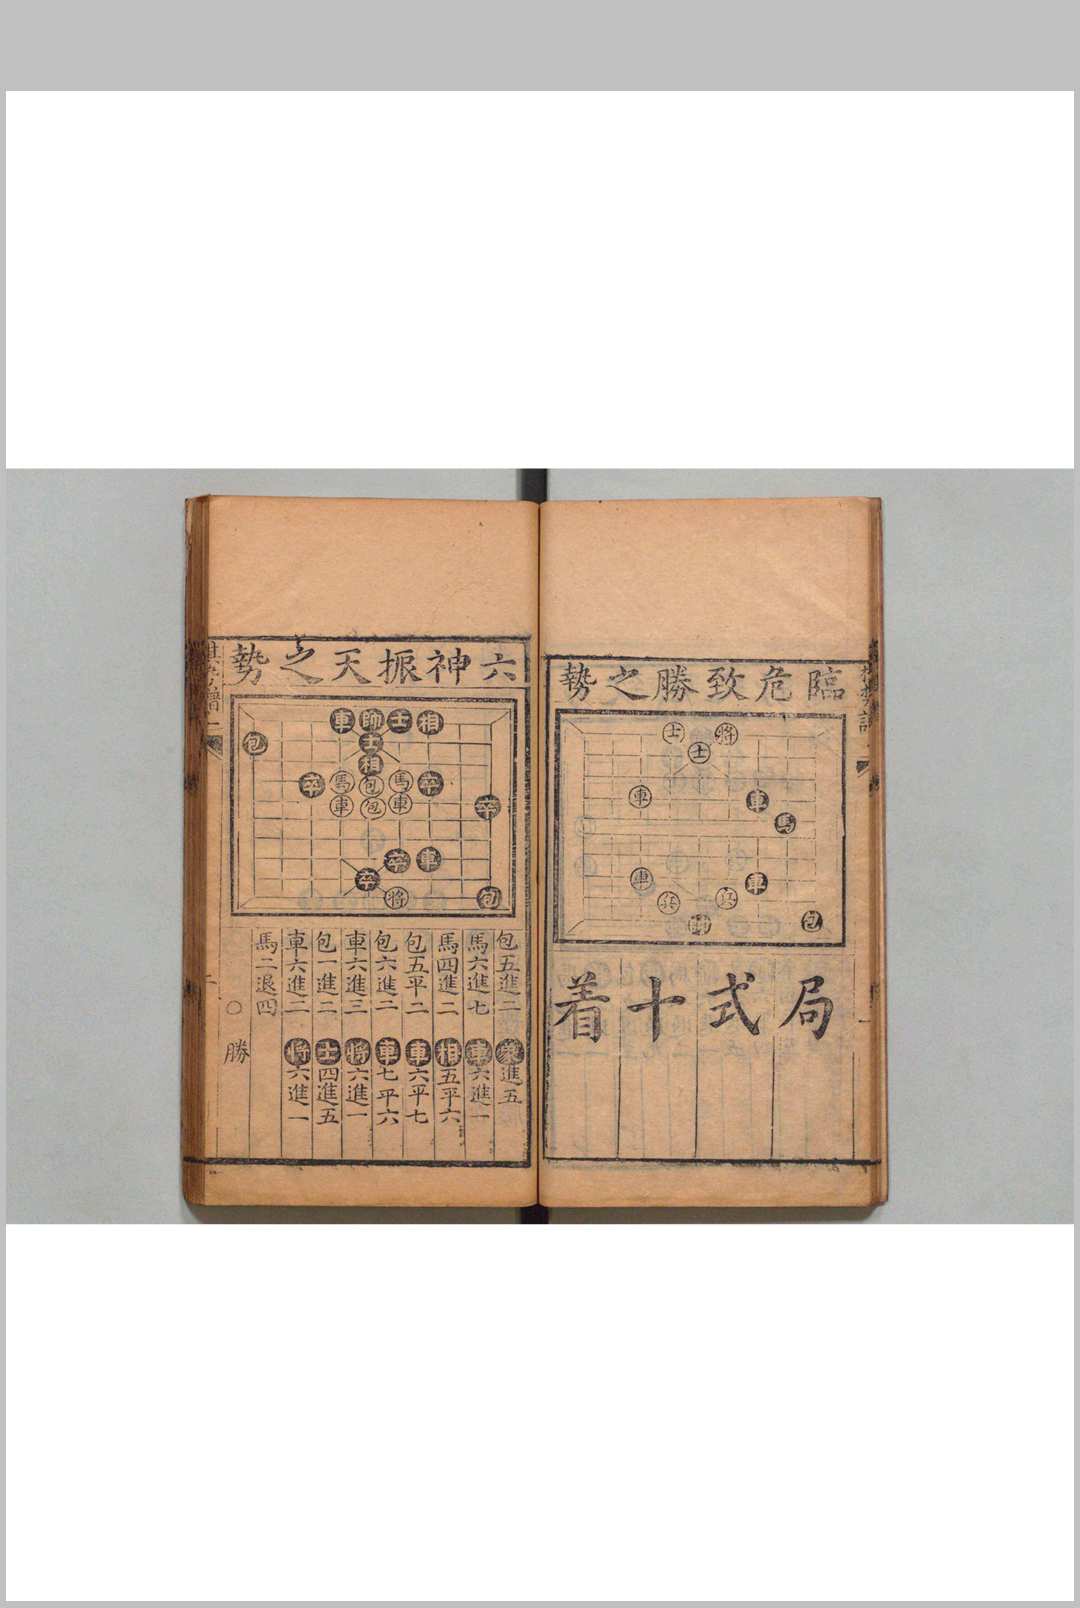 臨危致勝之勢
士 将
士
車 車
馬
車 車
兵 兵
帥 包
局式十着
六神振天之勢
車 帥 士 相
包 士
相
卒 馬 包 馬 卒
車 包 車 卒
卒 車
卒
将 包
包五進二 象進五
馬六進七 車六進一
馬四進二 相五平六
包五平二 車六平七
包六進二 車七平六
車六進三 将六進一
包一進二 士四進五
車六進二 将六進一
馬二退四
○勝